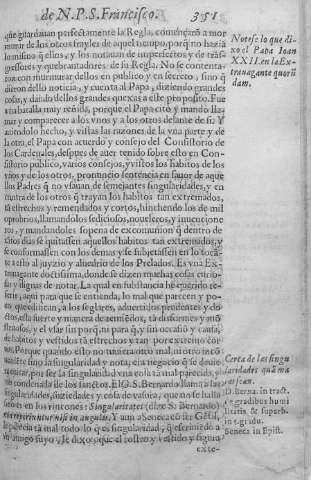 de N.P.S. Francisco. 351
que guardauan perfectamente la Regla, començarõ a mor
murar de los otros frayles de aquel tiempo, porq̃ no hazia
lo mismo, q̃ ellos, y los notauan de imperfectos y de
quebrantadores de su Regla. No se conten
tauan con murmurar dellos en publico y en secreto, sino q̃
dieron dello noticia, y cuenta al Papa, diziendo grandes
cosas, y dãdo dellos grandes quexas a este proposito. Fue
esta batalla muy reñida, porque el Papa citò y mandò lla
mar y comparecer a los vnos y a los otros delante de si. Y
auiendolo hecho, y vistas las razones de la vna parte y de
la otra, el Papa con acuerdo y consejo del Consistorio de
los Cardenales, despues de auer tenido sobre esto en Con
sistorio publico, varios consejos, y vistos los habitos de los
vnos y de los otros, pronuncio sentencia en fauor de aque
llos Padres q̃ no vsauan de semejantes singularidades, y en
contra de los otros q̃ trayan los habitos tan estremados,
tã estrechos y remendados y cortos, hinchendo los de mil
oprobrios, llamandolos sediciosos, noueleros, y inuencione
ros, y mandandoles sopena de excomunion q̃ dentro de
tãtos dias se quitassen aquellos habitos tan estremados, y
se conformassen con los demas y se subjetassen en lo tocã
te a esto al juyzio y aluedrio de los Prelados. Es vna Ex
trauagante doctissima, donde se dizen muchas cosas curio
sas y dignas de notar. La qual en substancia he querido re
ferir, aqui para que se entienda, lo mal que parecen y po
co que edifican, a los seglares, aduertidos prudentes y do
ctos, esta suerte y manera de
y el vsar sin porq̃, ni para q̃, y sin ocasiõ y causa,
de habitos y vestidos tã estrechos y tan por extremo cor
tos. Porque quando esto no tuuiera otro mal, ni otro incõ
uiniente sino la singularidad y nota, era negocio q̃ se deuia
euitar, por ser la singularidad vna cosa tã mal parecida, y
tan condenada de los sanctos. El G. S. Bernardo llama a las
singularidades, suziedades y cosa de vasura, que no se halla
sino en los rincones: Singularitates (dize S. Bernardo)
non inueniuntur nisi in angulis. Y aun a Seneca cõ ser Gẽtil,
le parecia tã mal todo lo q̃ es singularidad, q̃ escriuiẽdo a
vn amigo suyo, le dixo: que el postero y vestido y figura
exte-
Notese lo que di-
xo el Papa Ioan
XXII. en la Ex-
trauagante quorũ
dam.
Cerca de las singu
laridades quã ma
las sean.
D. Berna. in tract.
de gradibus humi
litatis & superb.
in 5. gradu.
Seneca in Epist.